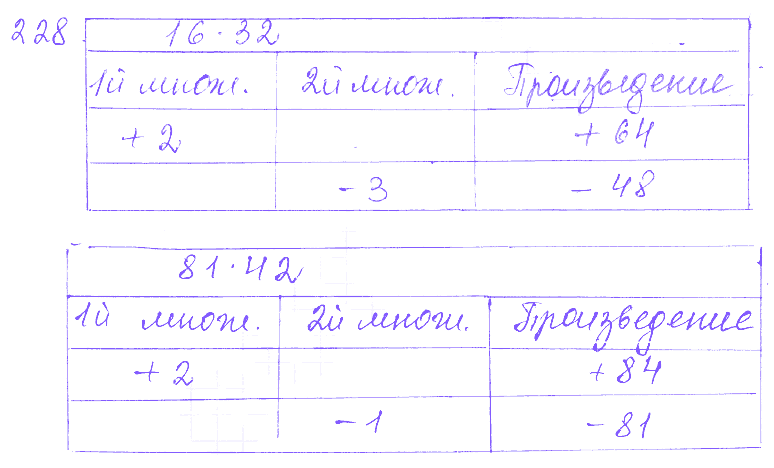 228 16·32
1й множ. 2й множ. Произведение
+2 +64
-3 -48
81·42
1й множ. 2й множ. Произведение
+2 +84
-1 -81